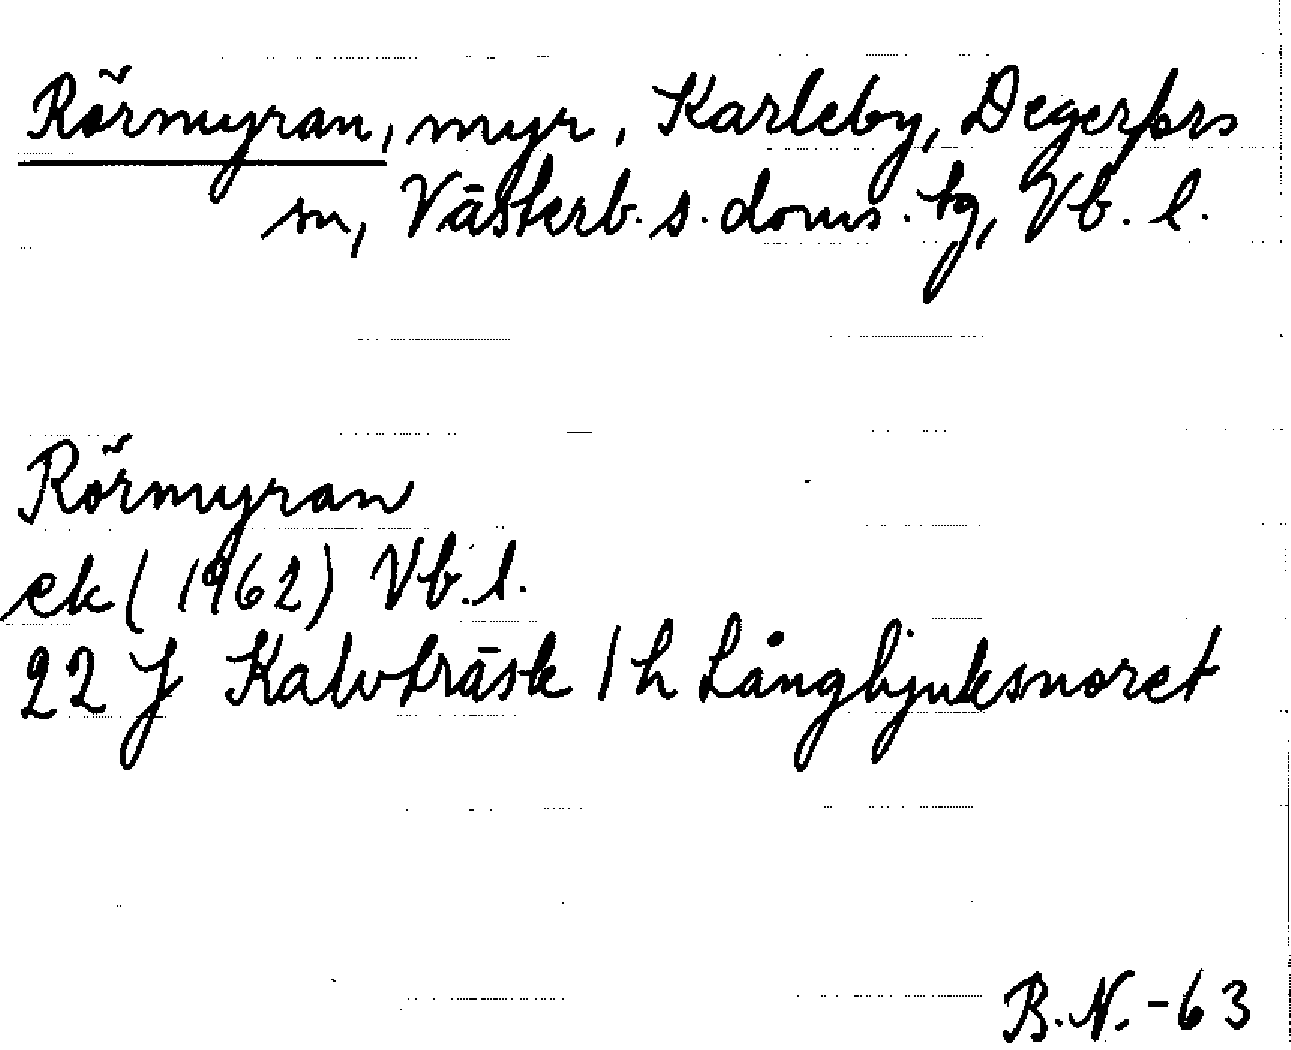 Rörmyran, myr, Karleby, Degerfors
sn, Västerb. s. doms. tg, Vb. l.
Rörmyran
ek (1962) Vb. l.
22 J Kalvträsk 1 h Långbjuksnoret
B.N. -63